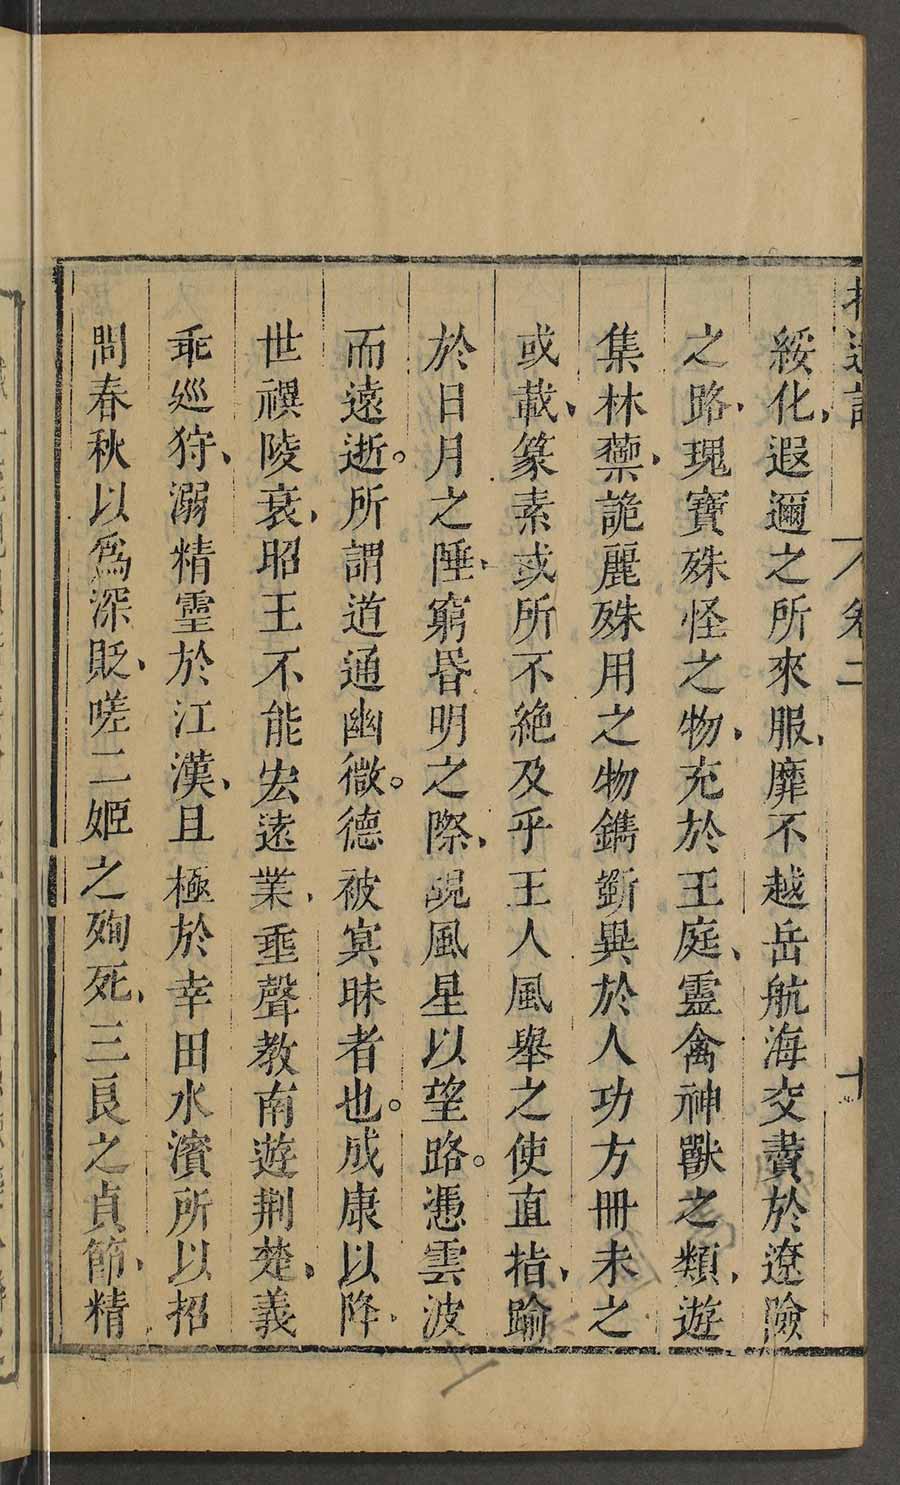 拾遺記 卷二 十
綏化、遐邇之所來服、靡不越岳航海交賮於遼險
之路、瑰寶殊怪之物、充於王庭、靈禽神獸之類、遊
集林藪、詭麗殊用之物鐫斲異於人功方冊未之
或載、篆素或所不絶及乎王人風舉之使直指、踰
於日月之陲、窮昏明之際、覘風星以望路。憑雲波
而遠逝。所謂道通幽微。德被㝠昧者也。成康以降、
世禩陵衰、昭王不能宏遠業、垂聲教南遊荆楚、義
乖巡狩、溺精靈於江漢、且極於幸田水濱所以招
問春秋以爲深貶、嗟二姬之殉死、三良之貞節、精